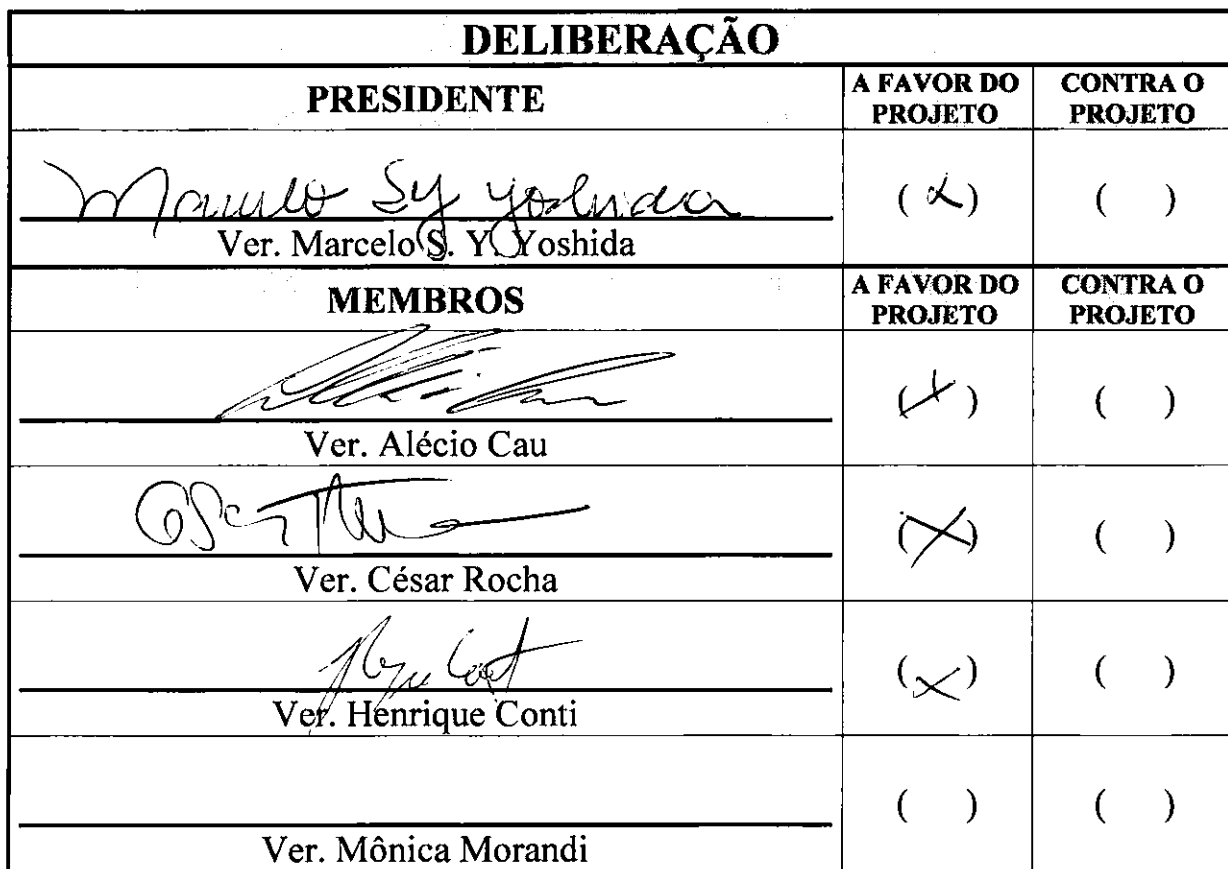 DELIBERAÇÃO
PRESIDENTE A FAVOR DO PROJETO CONTRA O PROJETO
Marcelo Sy Yoshida ( X ) ( )
Ver. Marcelo S. Y. Yoshida
MEMBROS A FAVOR DO PROJETO CONTRA O PROJETO
( X ) ( )
Ver. Alécio Cau
( X ) ( )
Ver. César Rocha
( X ) ( )
Ver. Henrique Conti
( ) ( )
Ver. Mônica Morandi